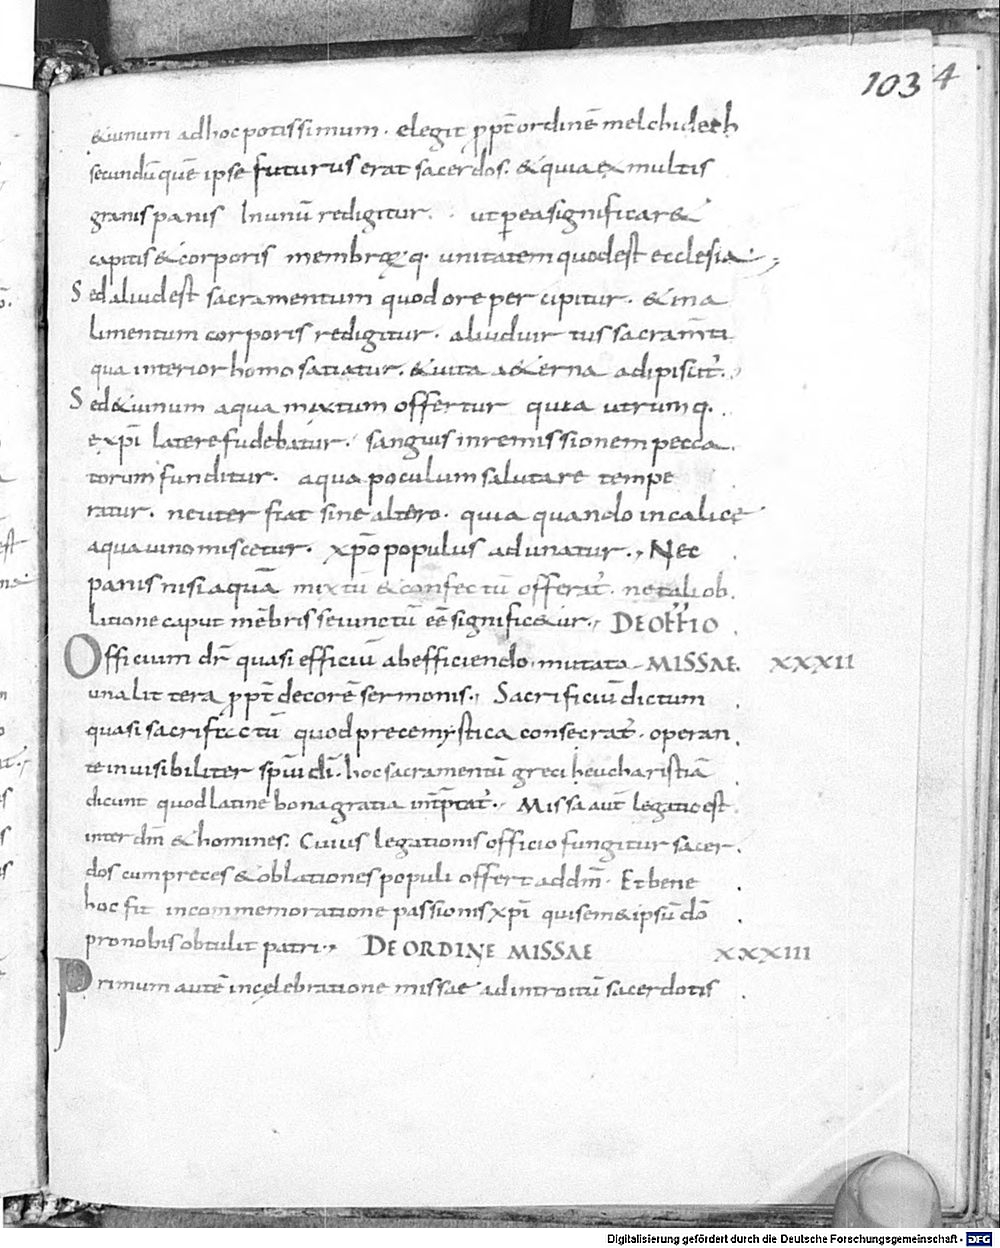 103 4
&uinum adhoc potissimum · elegit ꝓpt̄ ordinē melchidesh
secundū quē ipse futurus erat sacerdos. & quia ex multis
granis panis In unū redigitur. ut ꝑ ea significar&
capitis & corporis membroꝝq· unitatem quodest ecclesia
Sed aliudest sacramentum quod ore percipitur · & in a
limentum corporis redigitur · aliud uirtus sacram̄ti
qua interior homo satiatur · & uita a&erna adipiscit᷒.
Sed & uinum aqua mixtum offertur quia utrumq·
exp̄i latere fudebatur · sanguis in remissionem pecca
torum funditur · aqua poculum salutare tempe
ratur · neuter fiat sine altero · quia quando in calice
aqua uino miscetur · xp̄o populus adunatur., Nec
panis nisi aquā mixtū & confectū offerat᷒ · ne tali ob
latione caput mēbris seiunctū eē signific&ur., DE OFFIO
Officium dr̄ quasi efficiū ab efficiendo · mutata MISSAE. XXXII
una littera ꝓpt̄ decorē sermonis., Sacrificiū dictum
quasi sacrifactū quod prece mystica consecrat᷒ · operan
te inuisibiliter sp̄u dī · hoc sacramentū greci heucharistiā
dicunt quod latine bona gratia int̄ꝑtat᷒., Missa aut̄ legatio est
inter dm̄ & homines. Cuius legationis officio fungitur sacer
dos cum preces & oblationes populi offert ad dm̄ · Et bene
hoc fit in commemoratione passionis xp̄i qui sem&ipsū dō
pro nobis obtulit patri., DE ORDINE MISSAE XXXIII
Primum autē in celebratione missae ad introitū sacerdotis
Digitalisierung gefördert durch die Deutsche Forschungsgemeinschaft - DFG